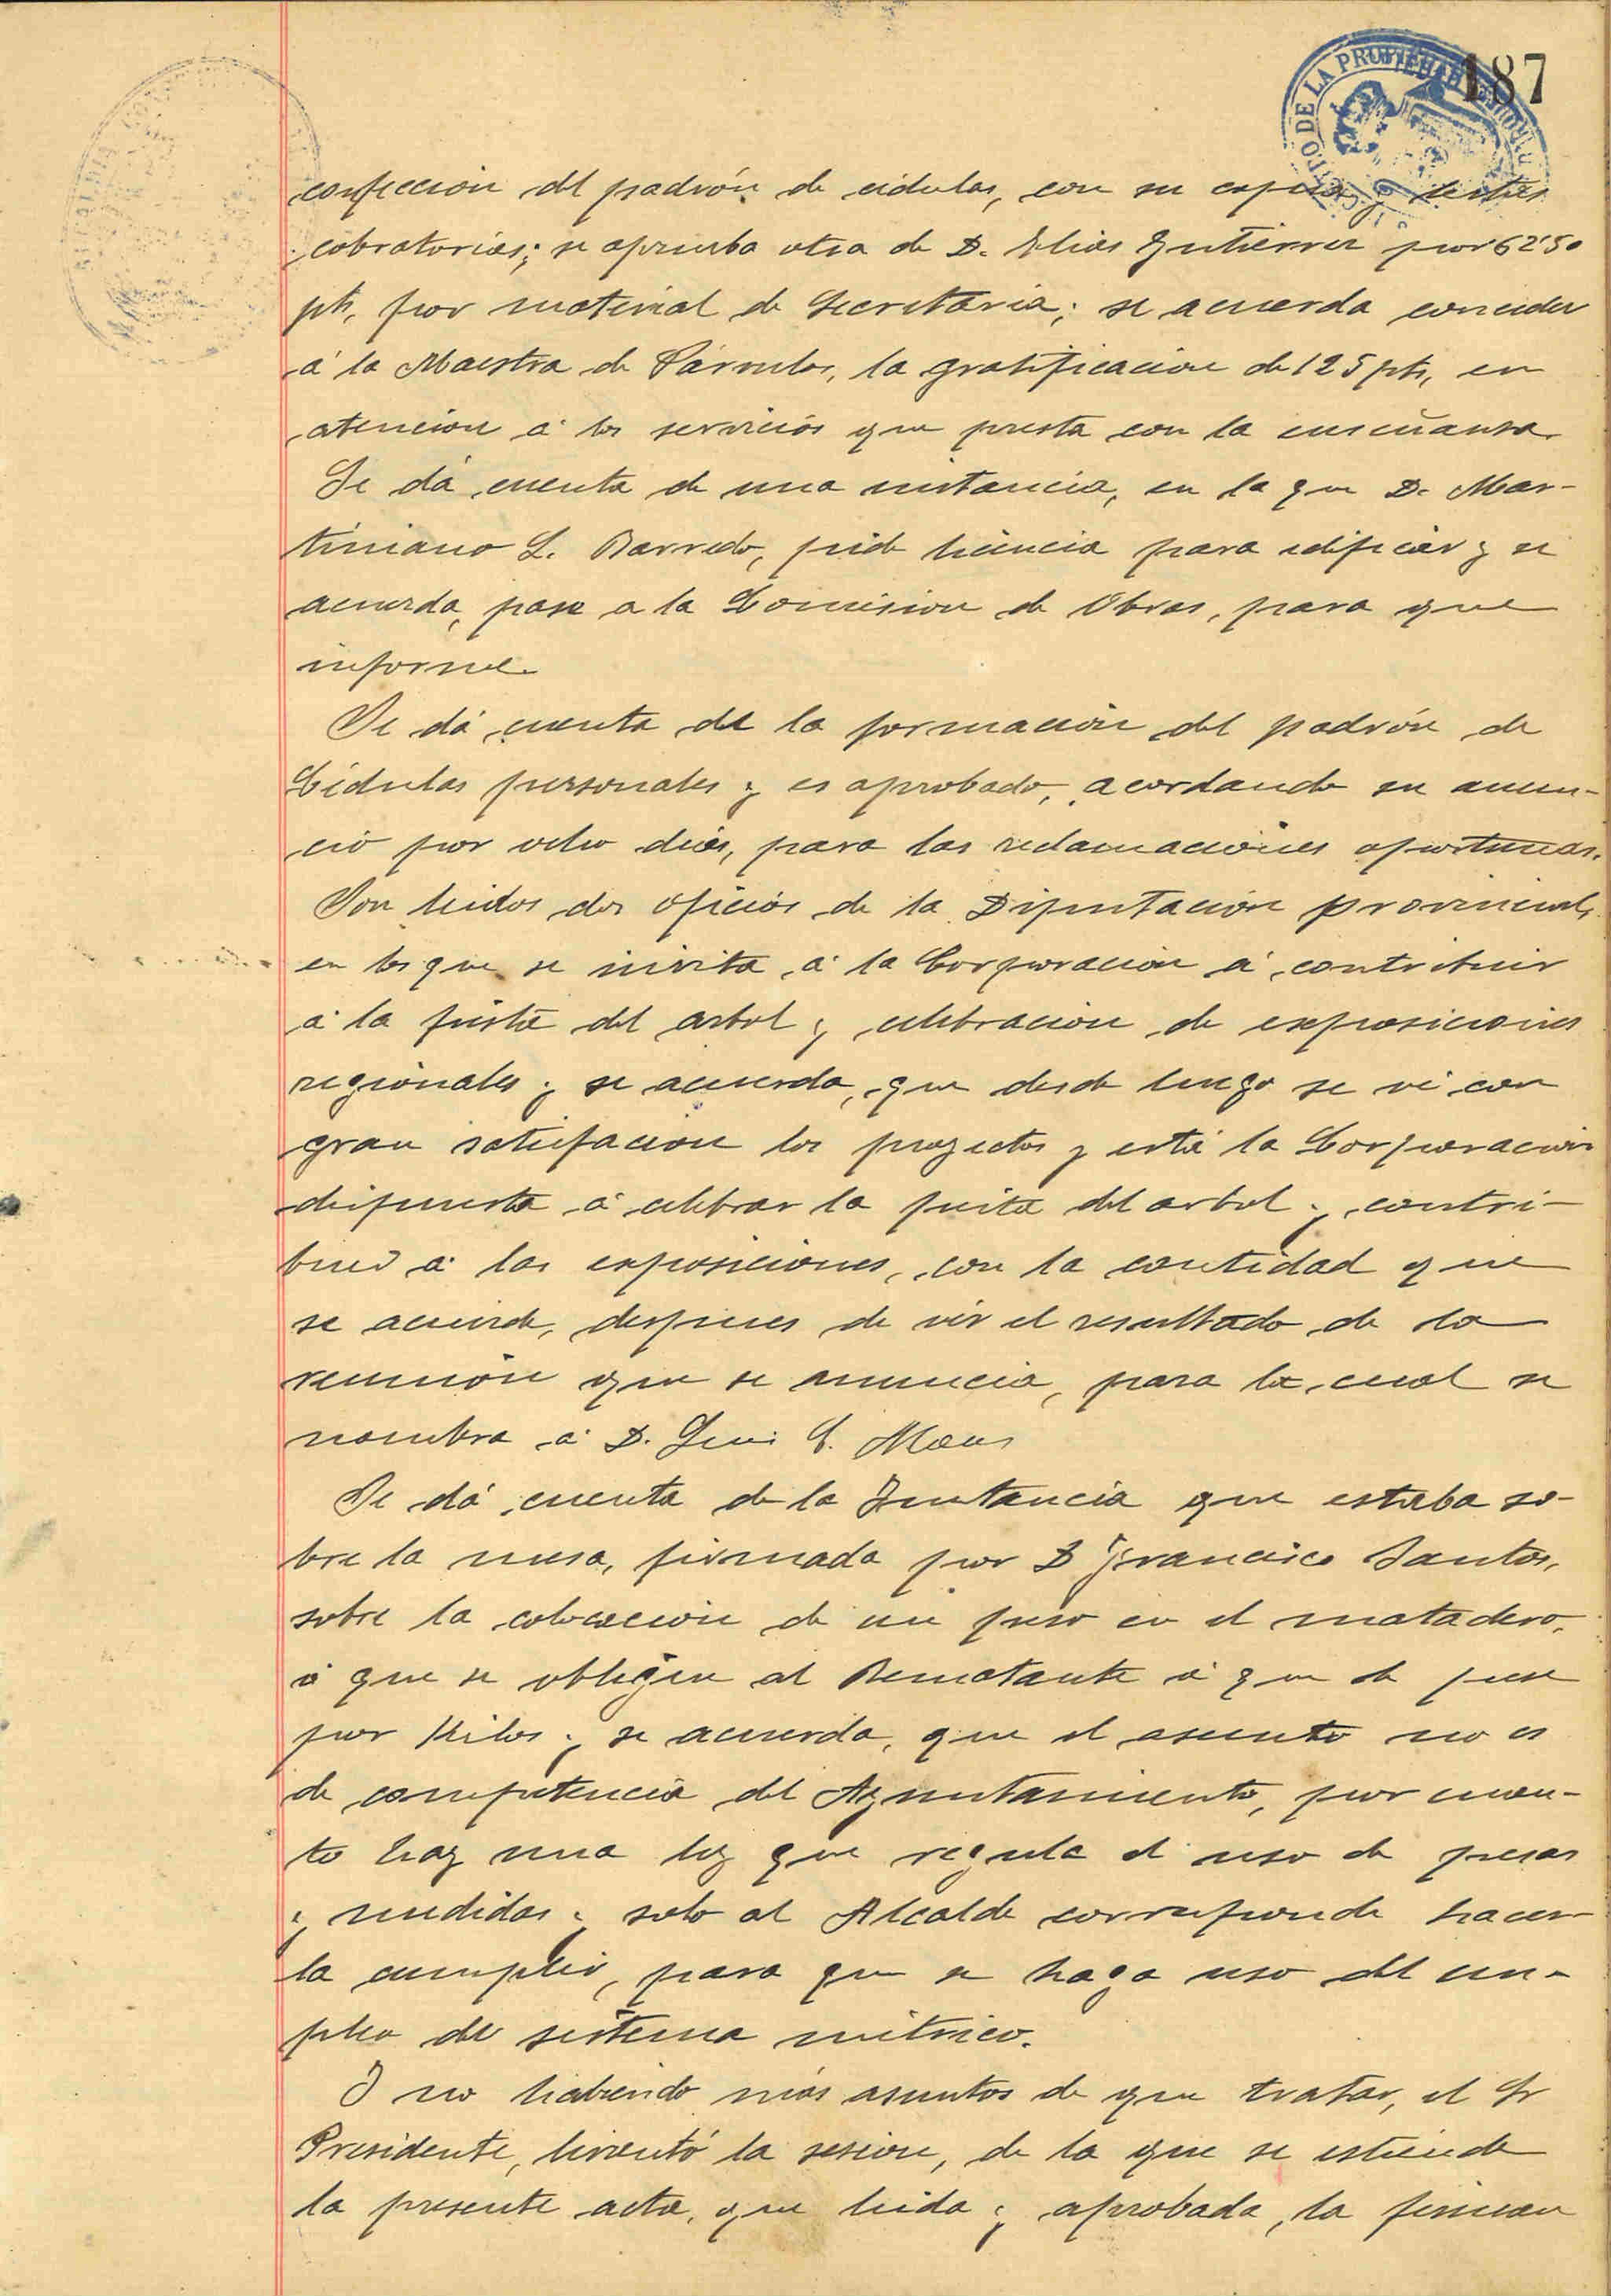 187
confeccion del padrón de cédulas, con su copia y listas
cobratorias; se aprueba otra de D. Elias Gutierrez por 62'50
pts, por material de Secretaria; se acuerda conceder
á la Maestra de Párvulos, la gratificacion de 125 pts, en
atencion á los servicios que presta con la enseñanza.
Se dá cuenta de una instancia, en la que D. Mar-
tiniano L. Barredo, pide licencia para edificar y se
acuerda, pase a la Comision de Obras, para que
informe.
Se dá cuenta de la formación del padrón de
Cédulas personales y es aprobado, acordando su anun-
cio por ocho dias, para las reclamaciones oportunas.
Son leidos dos oficios de la Diputación provincial,
en los que se invita á la Corporacion á contribuir
á la fiesta del arbol y celebracion de exposiciones
regionales y se acuerda, que desde luego se vé con
gran satisfacion los proyectos y está la Corporacion
dispuesta á celebrar la fiesta del arbol y contri-
buir á las exposiciones, con la cantidad que
se acuerde, despues de vér el resultado de la
reunión que se anuncia, para la cual se
nombra á D. Luis
Se dá cuenta de la Instancia que estaba so-
bre la mesa, firmada por D Francisco Santos,
sobre la colocacion de un peso en el matadero,
ó que se obligue al Rematante á que se pese
por Kilos y se acuerda, que el asunto no es
de competencia del Ayuntamiento, por cuan-
to hay una ley que regula el uso de pesas
y medidas y solo al Alcalde corresponde hacer-
la cumplir, para que se haga uso del em-
pleo del sistema métrico.
Y no habiendo más asuntos de que tratar, el Sr
Presidente, levantó la sesion, de la que se estiende
la presente acta, que leida y aprobada, la firman